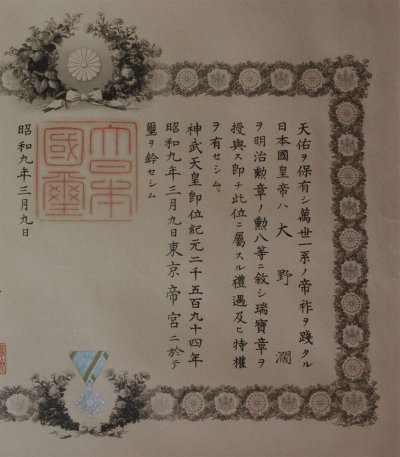 天佑ヲ保有シ萬世一系ノ帝祚ヲ踐タル
日本國皇帝ハ大野濶
ヲ明治勲章ノ勲八等ニ敘シ瑞寶章ヲ
授與ス即チ此位ニ屬スル禮遇及ヒ特權
ヲ有セシム
神武天皇即位紀元二千五百九十四年
昭和九年三月九日東京帝宮ニ於テ
璽ヲ鈐セシム
大日本國璽
昭和九年三月九日